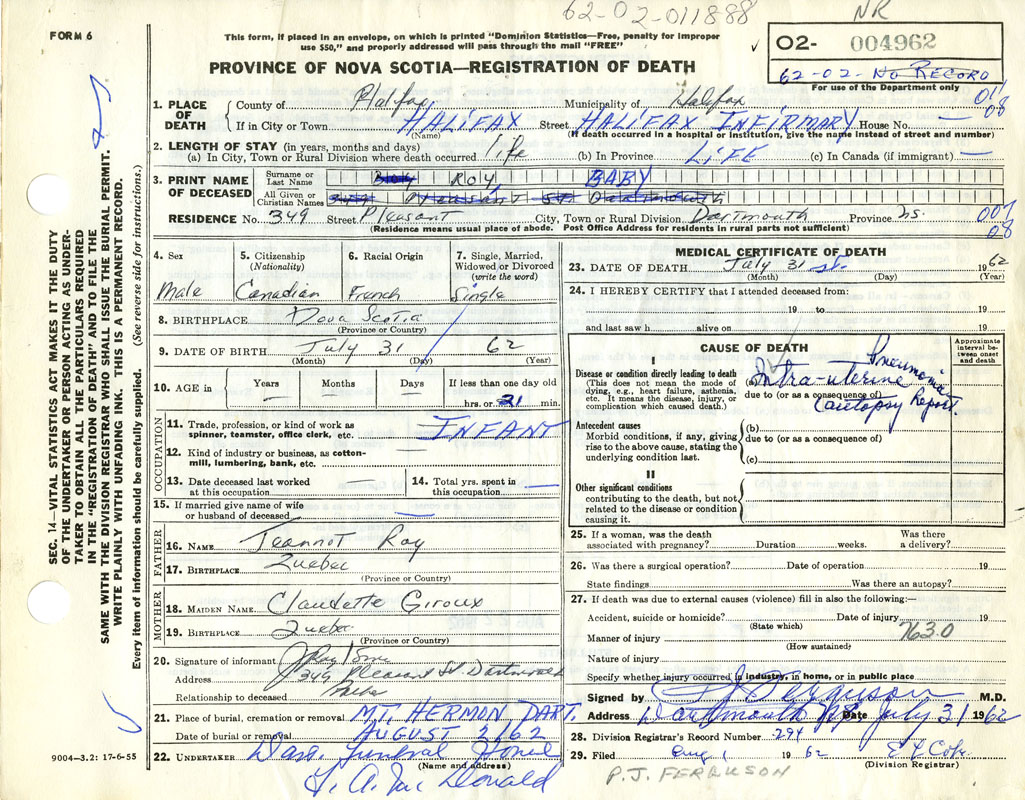 62-02-011888 NR
FORM 6
This form, if placed in an envelope, on which is printed "Dominion Statistics—Free, penalty for improper
use $50," and properly addressed will pass through the mail "FREE"
02- 004962
62-02-No RECORD
For use of the Department only
PROVINCE OF NOVA SCOTIA—REGISTRATION OF DEATH
1. PLACE OF DEATH { County of Halifax Municipality of Halifax 011 08
If in City or Town HALIFAX (Name) Street HALIFAX INFIRMARY House No. —
(If death occurred in a hospital or institution, give the name instead of street and number)
2. LENGTH OF STAY (in years, months and days)
(a) In City, Town or Rural Division where death occurred life (b) In Province LIFE (c) In Canada (if immigrant) —
3. PRINT NAME OF DECEASED { Surname or Last Name Boy ROY BABY
All Given or Christian Names 349 Pleasant St Dartmouth
RESIDENCE No. 349 Street Pleasant City, Town or Rural Division Dartmouth Province ns. 007 08
(Residence means usual place of abode. Post Office Address for residents in rural parts not sufficient)
4. Sex Male
5. Citizenship (Nationality) Canadian
6. Racial Origin French
7. Single, Married, Widowed or Divorced (write the word) Single
8. BIRTHPLACE Nova Scotia
(Province or Country)
9. DATE OF BIRTH July 31 62
(Month) (Day) (Year)
10. AGE in { Years Months Days If less than one day old
hrs. or 21 min.
OCCUPATION
11. Trade, profession, or kind of work as spinner, teamster, office clerk, etc. INFANT
12. Kind of industry or business, as cotton-mill, lumbering, bank, etc.
13. Date deceased last worked at this occupation
14. Total yrs. spent in this occupation —
15. If married give name of wife or husband of deceased —
FATHER
16. NAME Jeannot Roy
17. BIRTHPLACE Quebec
(Province or Country)
MOTHER
18. MAIDEN NAME Claudette Giroux
19. BIRTHPLACE Quebec
(Province or Country)
20. Signature of informant J Roy
Address 349 Pleasant St Dartmouth
Relationship to deceased
21. Place of burial, cremation or removal MT. HERMON DART.
Date of burial or removal AUGUST 2/62
22. UNDERTAKER Dart. Funeral Home
(Name and address)
F. A. Mc Donald
MEDICAL CERTIFICATE OF DEATH
23. DATE OF DEATH July 31 st. 1962
(Month) (Day) (Year)
24. I HEREBY CERTIFY that I attended deceased from:
19 to 19
and last saw h alive on 19
CAUSE OF DEATH
Approximate interval between onset and death
I
Disease or condition directly leading to death
(This does not mean the mode of dying, e.g., heart failure, asthenia, etc. It means the disease, injury, or complication which caused death.)
(a) Intra-uterine Pneumonia
due to (or as a consequence of)
(autopsy Report.
Antecedent causes
Morbid conditions, if any, giving rise to the above cause, stating the underlying condition last.
(b)
due to (or as a consequence of)
(c)
II
Other significant conditions
contributing to the death, but not related to the disease or condition causing it.
25. If a woman, was the death associated with pregnancy? Duration weeks. Was there a delivery?
26. Was there a surgical operation? Date of operation 19
State findings Was there an autopsy?
27. If death was due to external causes (violence) fill in also the following:—
Accident, suicide or homicide? Date of injury 19
(State which)
Manner of injury 763.0
(How sustained)
Nature of injury
Specify whether injury occurred in industry, in home, or in public place
Signed by P J Ferguson M.D.
Address Dartmouth NS Date July 31 1962
28. Division Registrar's Record Number 294
29. Filed Aug 1 1962
(Division Registrar)
P.J. FERGUSON
SEC. 14—VITAL STATISTICS ACT MAKES IT THE DUTY
OF THE UNDERTAKER OR PERSON ACTING AS UNDER-
TAKER TO OBTAIN ALL THE PARTICULARS REQUIRED
IN THE "REGISTRATION OF DEATH" AND TO FILE THE
SAME WITH THE DIVISION REGISTRAR WHO SHALL ISSUE THE BURIAL PERMIT.
WRITE PLAINLY WITH UNFADING INK. THIS IS A PERMANENT RECORD.
Every item of information should be carefully supplied. (See reverse side for instructions.)
9004—3.2: 17-6-55